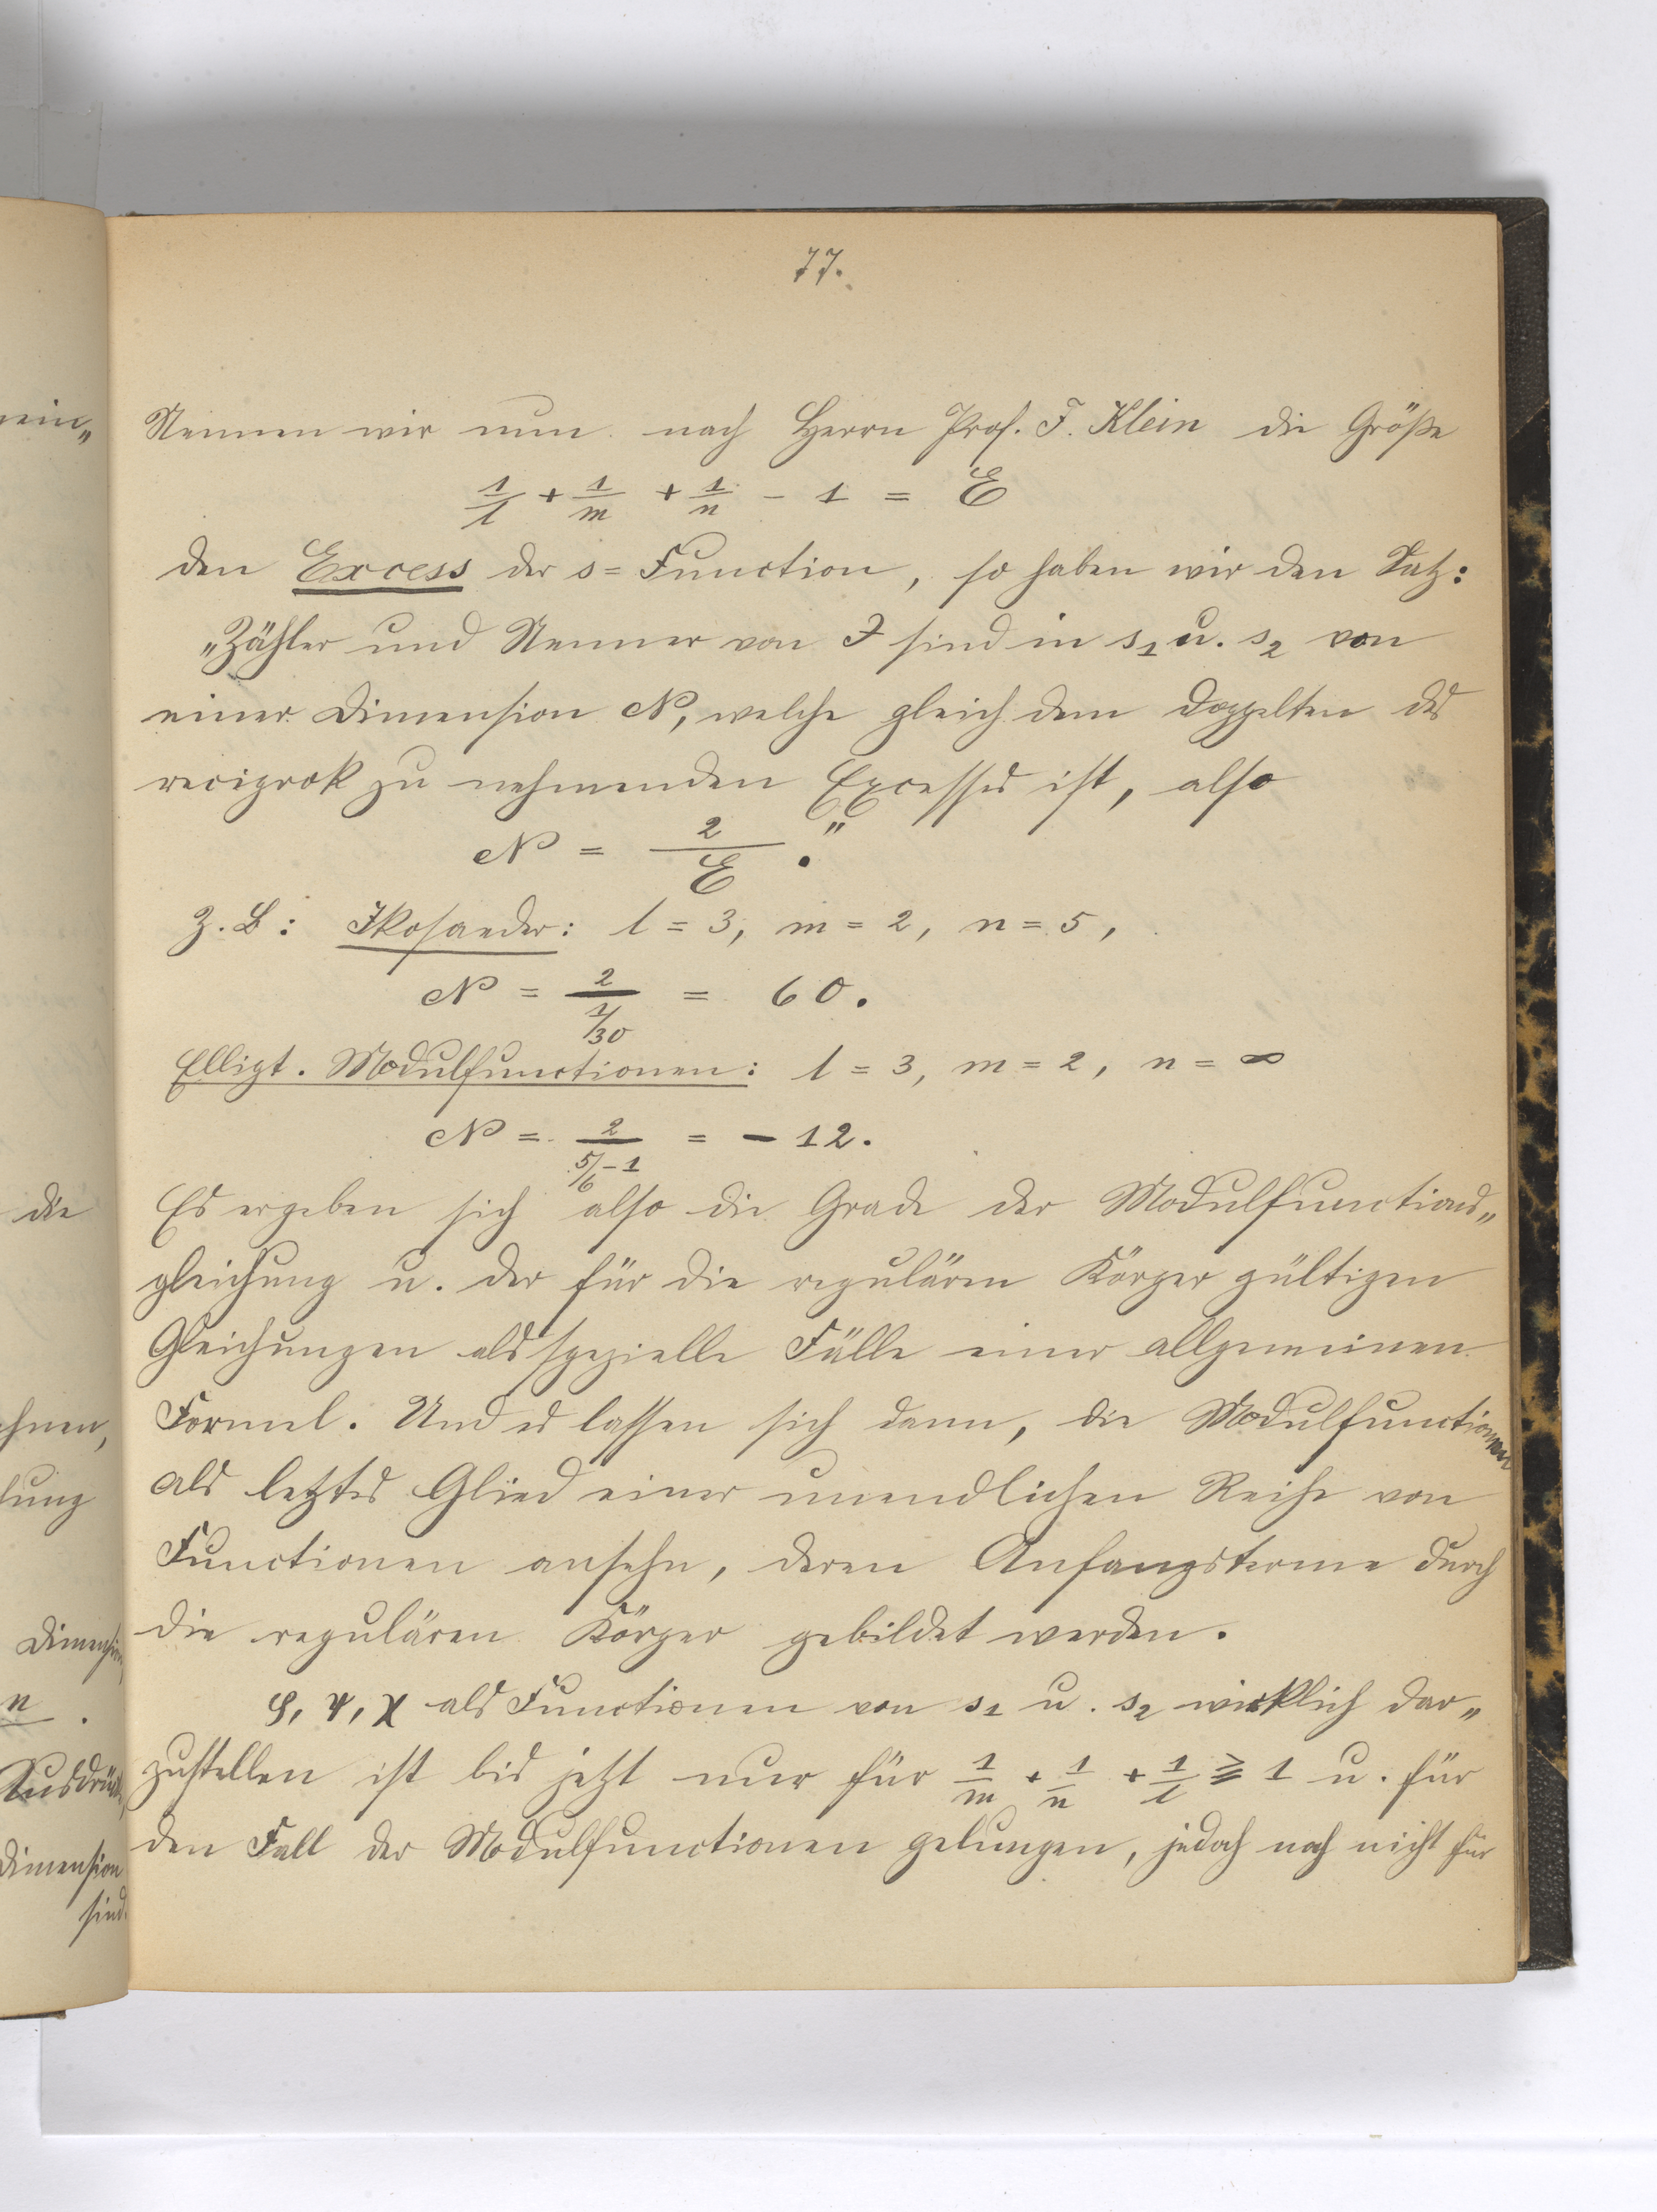 77.
Nennen wir nun nach Herrn Prof. F. Klein die Größe
1/l + 1/m + 1/n - 1 = E
den Excess der s=Function, so haben wir den Satz:
„Zähler und Nenner von J sind in s₁ u. s₂ von
einer Dimension N, welche gleich dem Doppelten des
reciprok zu nehmenden Excesses ist, also
N = 2/E ."
Z. B: Ikosaeder: l = 3, m = 2, n = 5,
N = 2/(1/30) = 60.
Ellipt. Modulfunctionen: l = 3, m = 2, n = ∞
N = 2/(5/6 - 1) = - 12.
Es ergeben sich also die Grade der Modulfunctions„
gleichung u. der für die regulären Körper gültigen
Gleichungen als spezielle Fälle einer allgemeinen
Formel. Und es lassen sich dann, die Modulfunctionen
als letztes Glied einer unendlichen Reihe von
Functionen ansehn, deren Anfangsterme durch
die regulären Körper gebildet werden.
φ, ψ, χ als Functionen von s₁ u. s₂ wirklich dar„
zustellen ist bis jetzt nur für 1/m + 1/n + 1/l ≧ 1 u. für
den Fall der Modulfunctionen gelungen, jedoch noch nicht für
ein„
die
hnen,
lung
Dimension
n .
Ausdrücke
Dimension
sind.